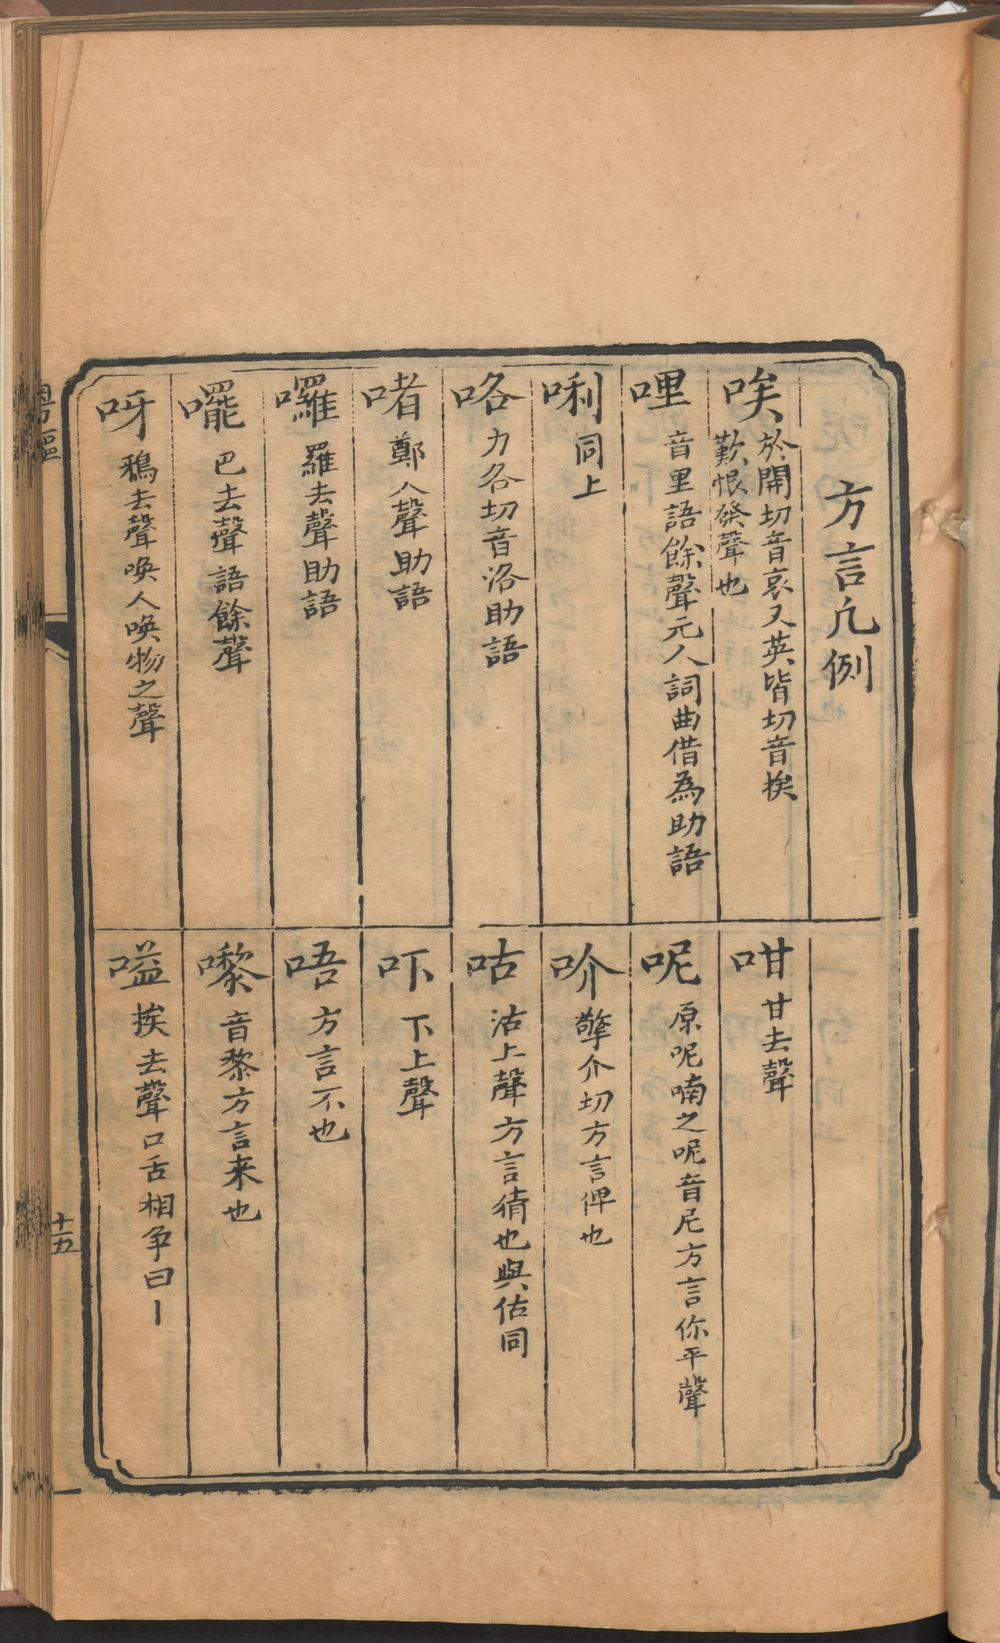 方言凡例
唉 於開切音哀又英皆切音挨
歎恨發聲也
哩 音里語餘聲元人詞曲借為助語
唎 同上
咯 力各切音洛助語
啫 鄭入聲助語
囉 羅去聲助語
𡃓 巴去聲語餘聲
呀 鴉去聲喚人喚物之聲
咁 甘去聲
呢 原呢喃之呢音尼方言你平聲
吤 擎介切方言俾也
咕 沽上聲方言猜也與估同
吓 下上聲
唔 方言不也
嚟 音黎方言来也
嗌 挨去聲口舌相争曰丨
十五